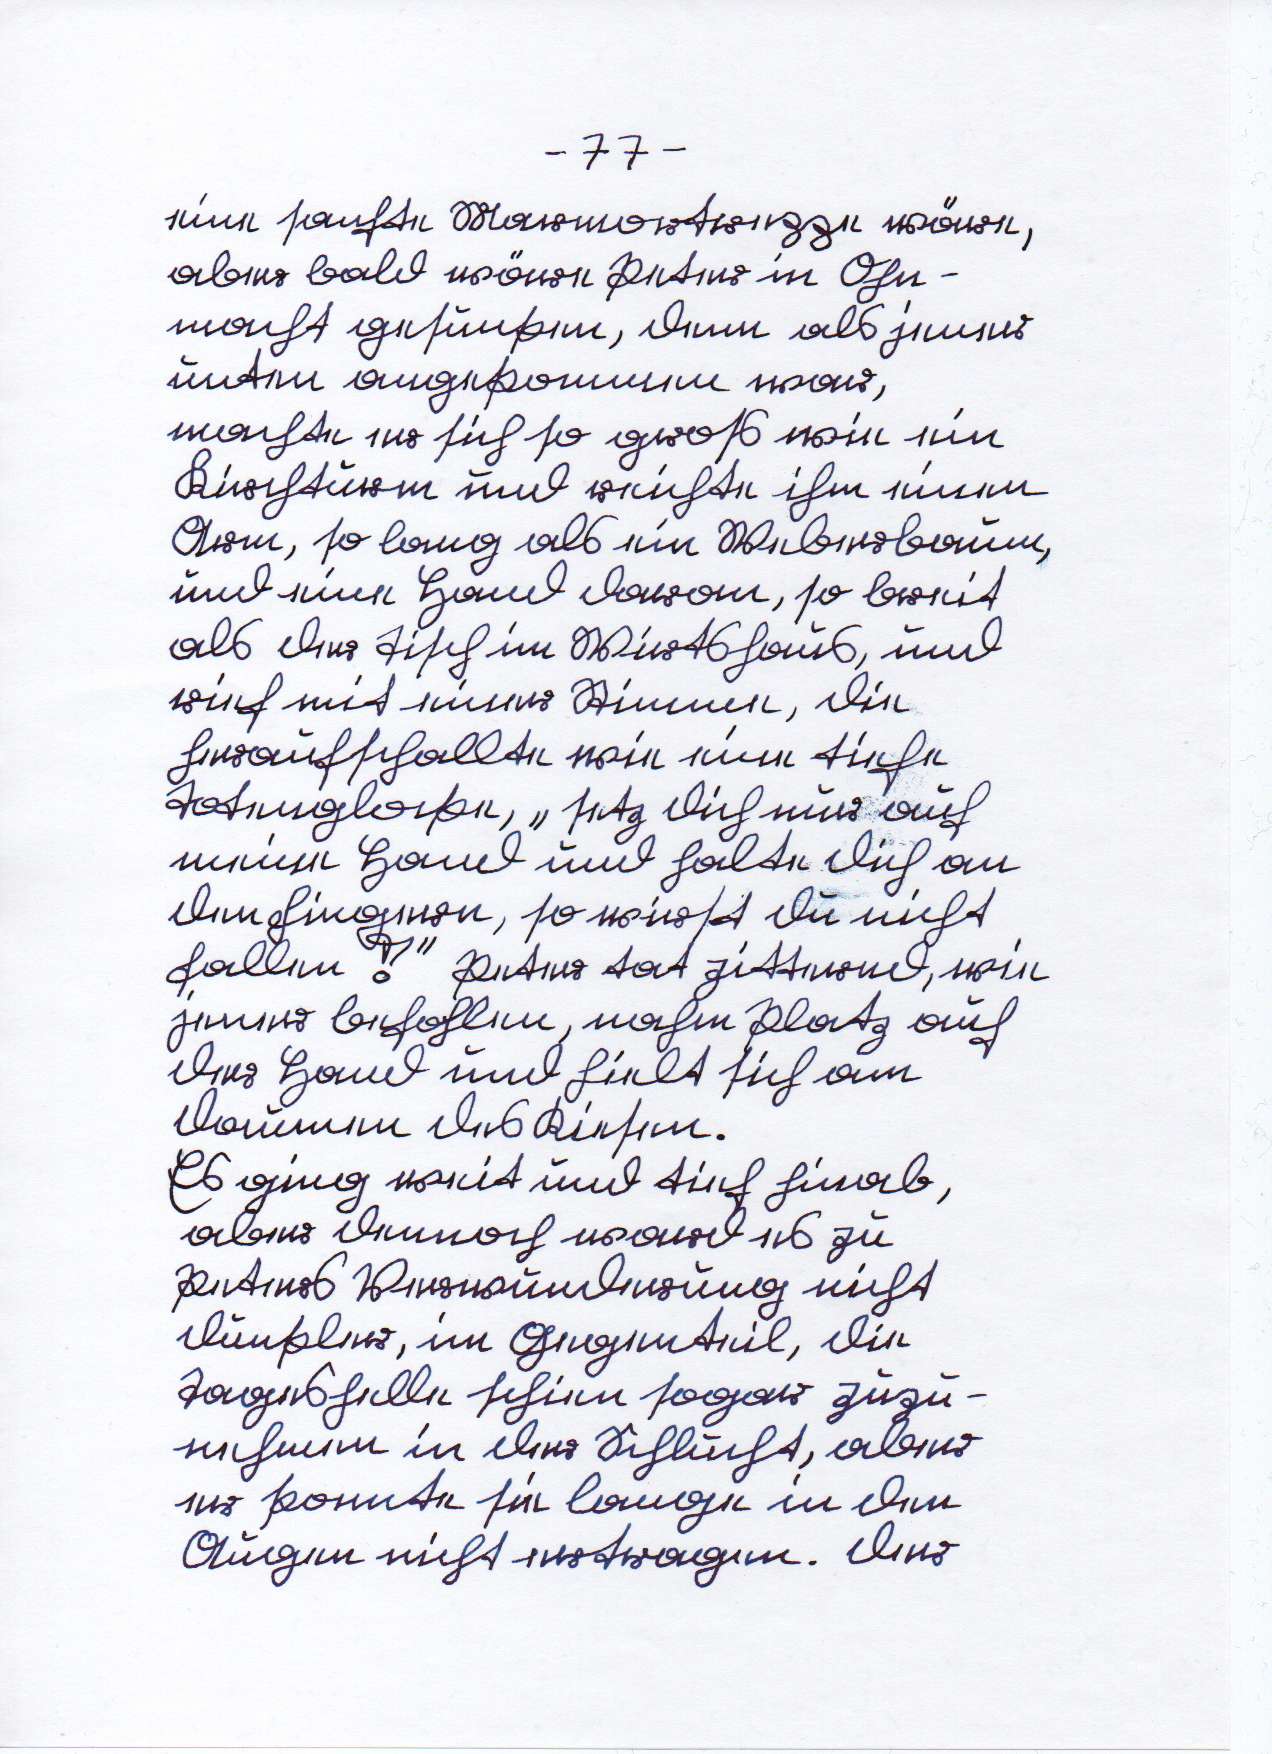 - 77 -
eine sanfte Marmortreppe wäre,
aber bald wäre Peter in Ohn-
macht gesunken, denn als jener
unten angekommen war,
machte er sich so groß wie ein
Kirchturm und reichte ihm einen
Arm, so lang als ein Weberbaum,
und eine Hand daran, so breit
als der Tisch im Wirtshaus, und
rief mit einer Stimme, die
heraufschallte wie eine tiefe
Totenglocke, „setz dich nur auf
meine Hand und halte dich an
den Fingern, so wirst du nicht
fallen!" Peter tat zitternd, wie
jener befohlen, nahm Platz auf
der Hand und hielt sich am
Daumen des Riesen.
Es ging weit und tief hinab,
aber dennoch ward es zu
Peters Verwunderung nicht
dunkler, im Gegenteil, die
Tageshelle schien sogar zuzu-
nehmen in der Schlucht, aber
er konnte sie lange in den
Augen nicht ertragen. Der